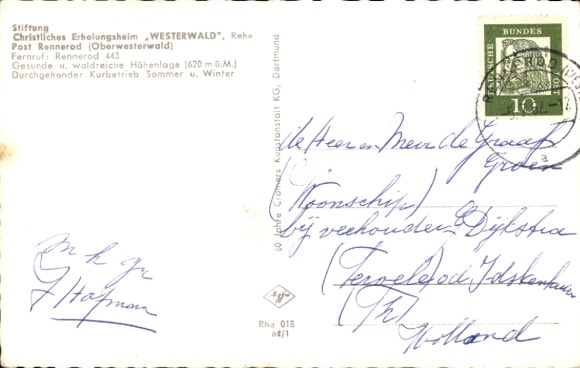 Stiftung
Christliches Erholungsheim „WESTERWALD", Rehe
Post Rennerod (Oberwesterwald)
Fernruf: Rennerod 443
Gesunde u. waldreiche Höhenlage (620 m ü.M.)
Durchgehender Kurbetrieb Sommer u. Winter
m h gr
Hofman
60 Jahre Cramers Kunstanstalt KG, Dortmund
Agfa
Rhe 018
62/1
DEUTSCHE BUNDESPOST
10
de Heer en Mevr de Graaf
Groen
(Woonschip)
bij veehouder Dijkstra
(Tervele) od
(Fr)
Holland